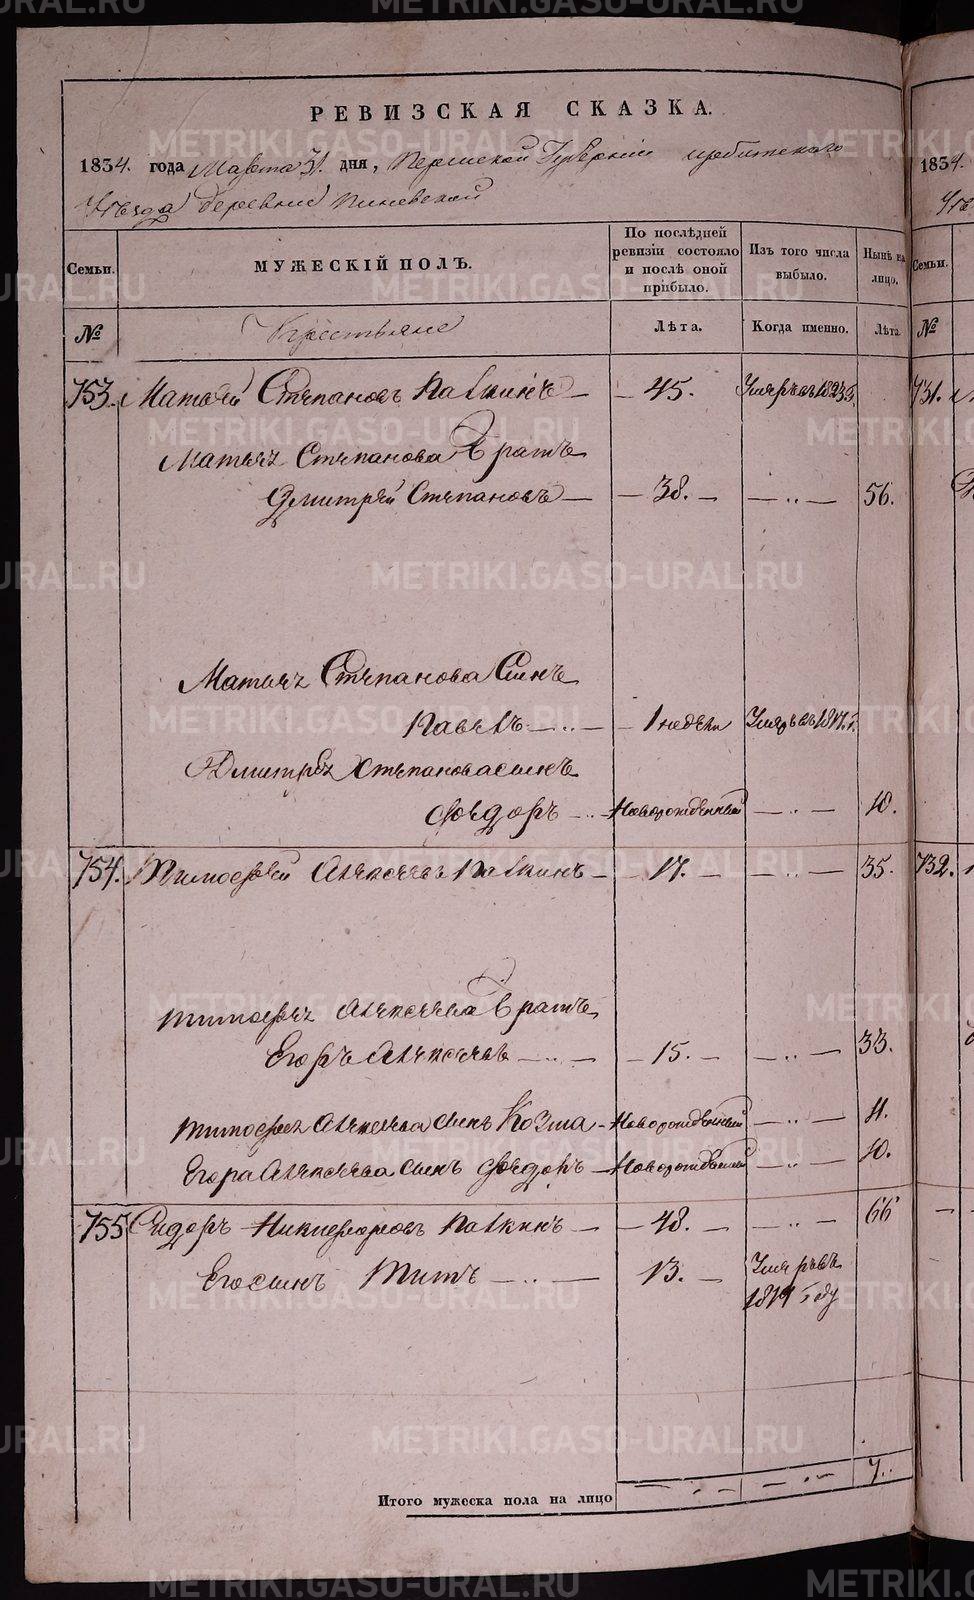 РЕВИЗСКАЯ СКАЗКА.
1834. года Марта 31. дня, Пермской Губернии Ирбитскаго
Уѣзда деревни
Семьи. МУЖЕСКІЙ ПОЛЪ. По послѣдней ревизіи состояло и послѣ оной прибыло. Изъ того числа выбыло. Нынѣ на лицо.
№ Крестьяне Лѣта. Когда именно. Лѣта.
753. Матвѣй Степановъ Палкинъ 45. Умеръ въ
Матвѣя Степанова Братъ
Дмитрей Степановъ 38. 56.
Матвѣя Степанова Сынъ
Павелъ 1 недели Умеръ въ 1817. г.
Дмитрея Степанова сынъ
Федоръ Новорожденный 10.
754. Тимофей Алексеевъ Палкинъ 17. 35.
Тимофея Алексеева Братъ
Егоръ Алексеевъ 15. 33.
Тимофея Алексеева сынъ Козма Новорожденный 11.
Егора Алексеева сынъ Федоръ Новорожденный 10.
755 Сидоръ Никифоровъ Палкинъ 48. 66
Его сынъ Титъ 13. Умеръ въ
1819 году
Итого мужеска пола на лицо 7.
1834.
Уѣ
Семьи.
№
731.
732.
METRIKI.GASO-URAL.RU